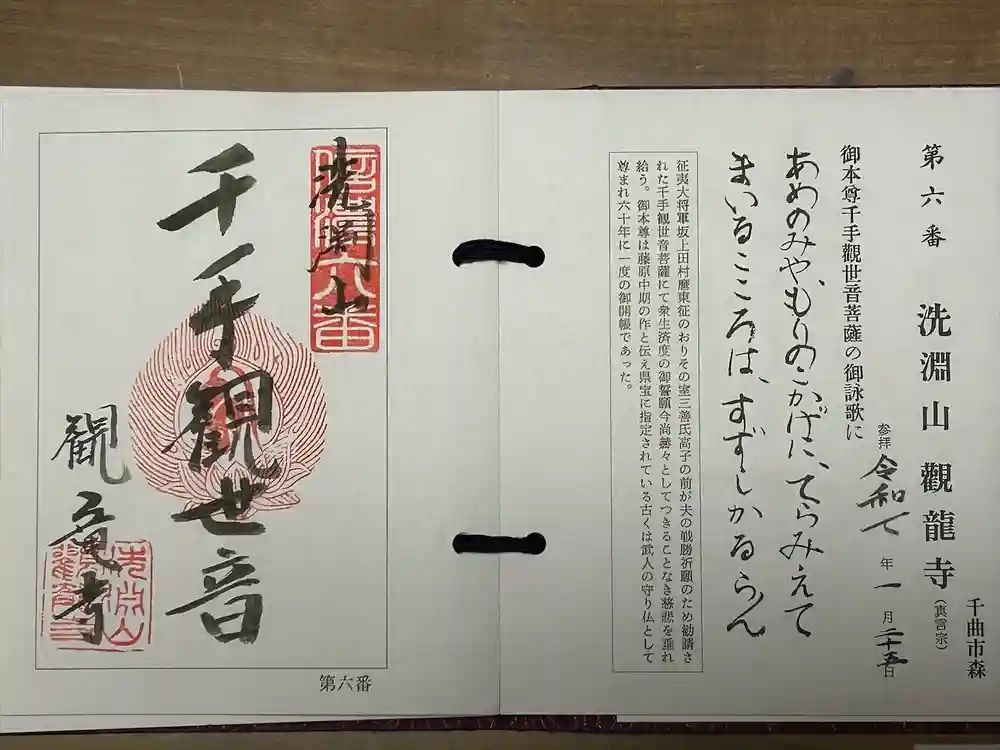 千曲市森
第六番 洗淵山 觀龍寺（真言宗）
参拝 令和七年一月二十五日
御本尊千手觀世音菩薩の御詠歌に
あめのみや、もりのこかげに、てらみえて
まいるこころは、すずしかるらん
征夷大将軍坂上田村麿東征のおりその室三善氏高子の前が夫の戦勝祈願のため勧請さ
れた千手観世音菩薩にて衆生済度の御誓願今尚赫々としてつきることなき慈悲を垂れ
給う。御本尊は藤原中期の作と伝え県宝に指定されている古くは武人の守り仏として
尊まれ六十年に一度の御開帳であった。
洗渕山
千手観世音
観竜寺
第六番